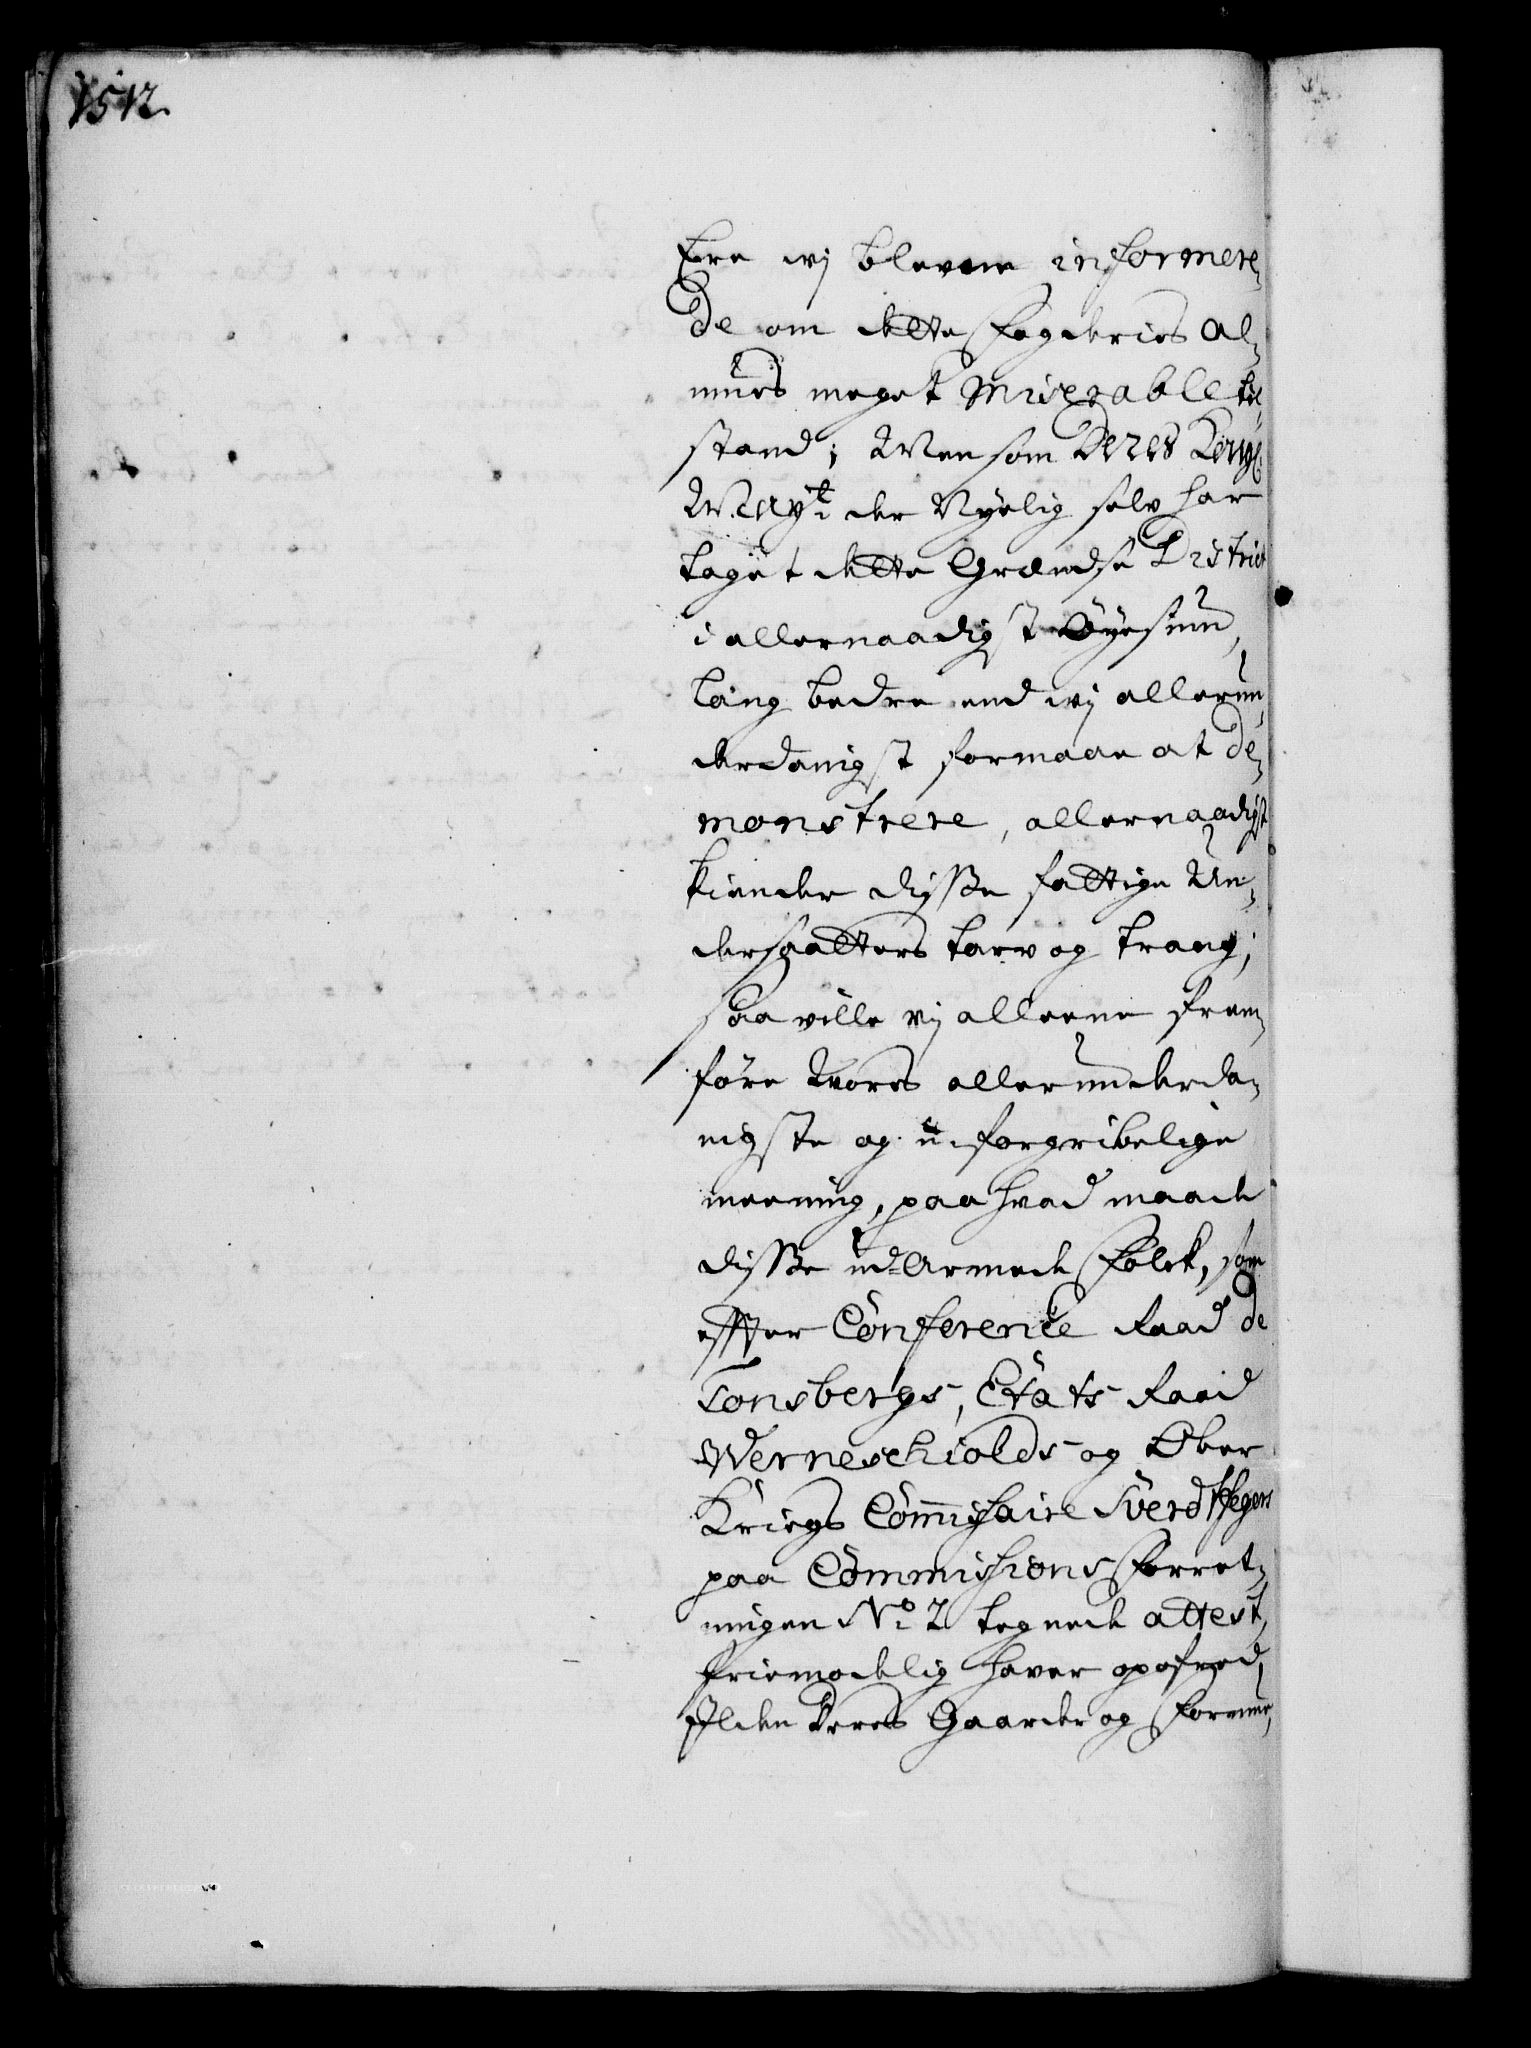 1512.
Ere wj blevene informere¬
de om dette Fogderies Al¬
mues meget Miserable til¬
stand; Men som Deres Kongl.
May.t der Nyelig selv har
taget dette Grændse District
i allernaadigst Øyesiun,
lang bedre end wj allerun¬
derdanigst formaae at de¬
monstrere, allernaadigst
kiender disse fattige Un¬
dersaatters tarv og trang;
Saa ville vj alleene frem¬
føre Vores allerunderda¬
nigste og uforgribelige
meening, paa hvad maade
disse ud-Armede Folck, som
effter Conference Raad de
Tonsbergs, Etats Raad
Werneschiolds og Ober
Kriegs Commissaire Sverdfegers
paa Commissions Forret¬
ningen No. 2 tegnede attest,
friemodelig haver opofred,
Ilden deres Gaarder og Formue,